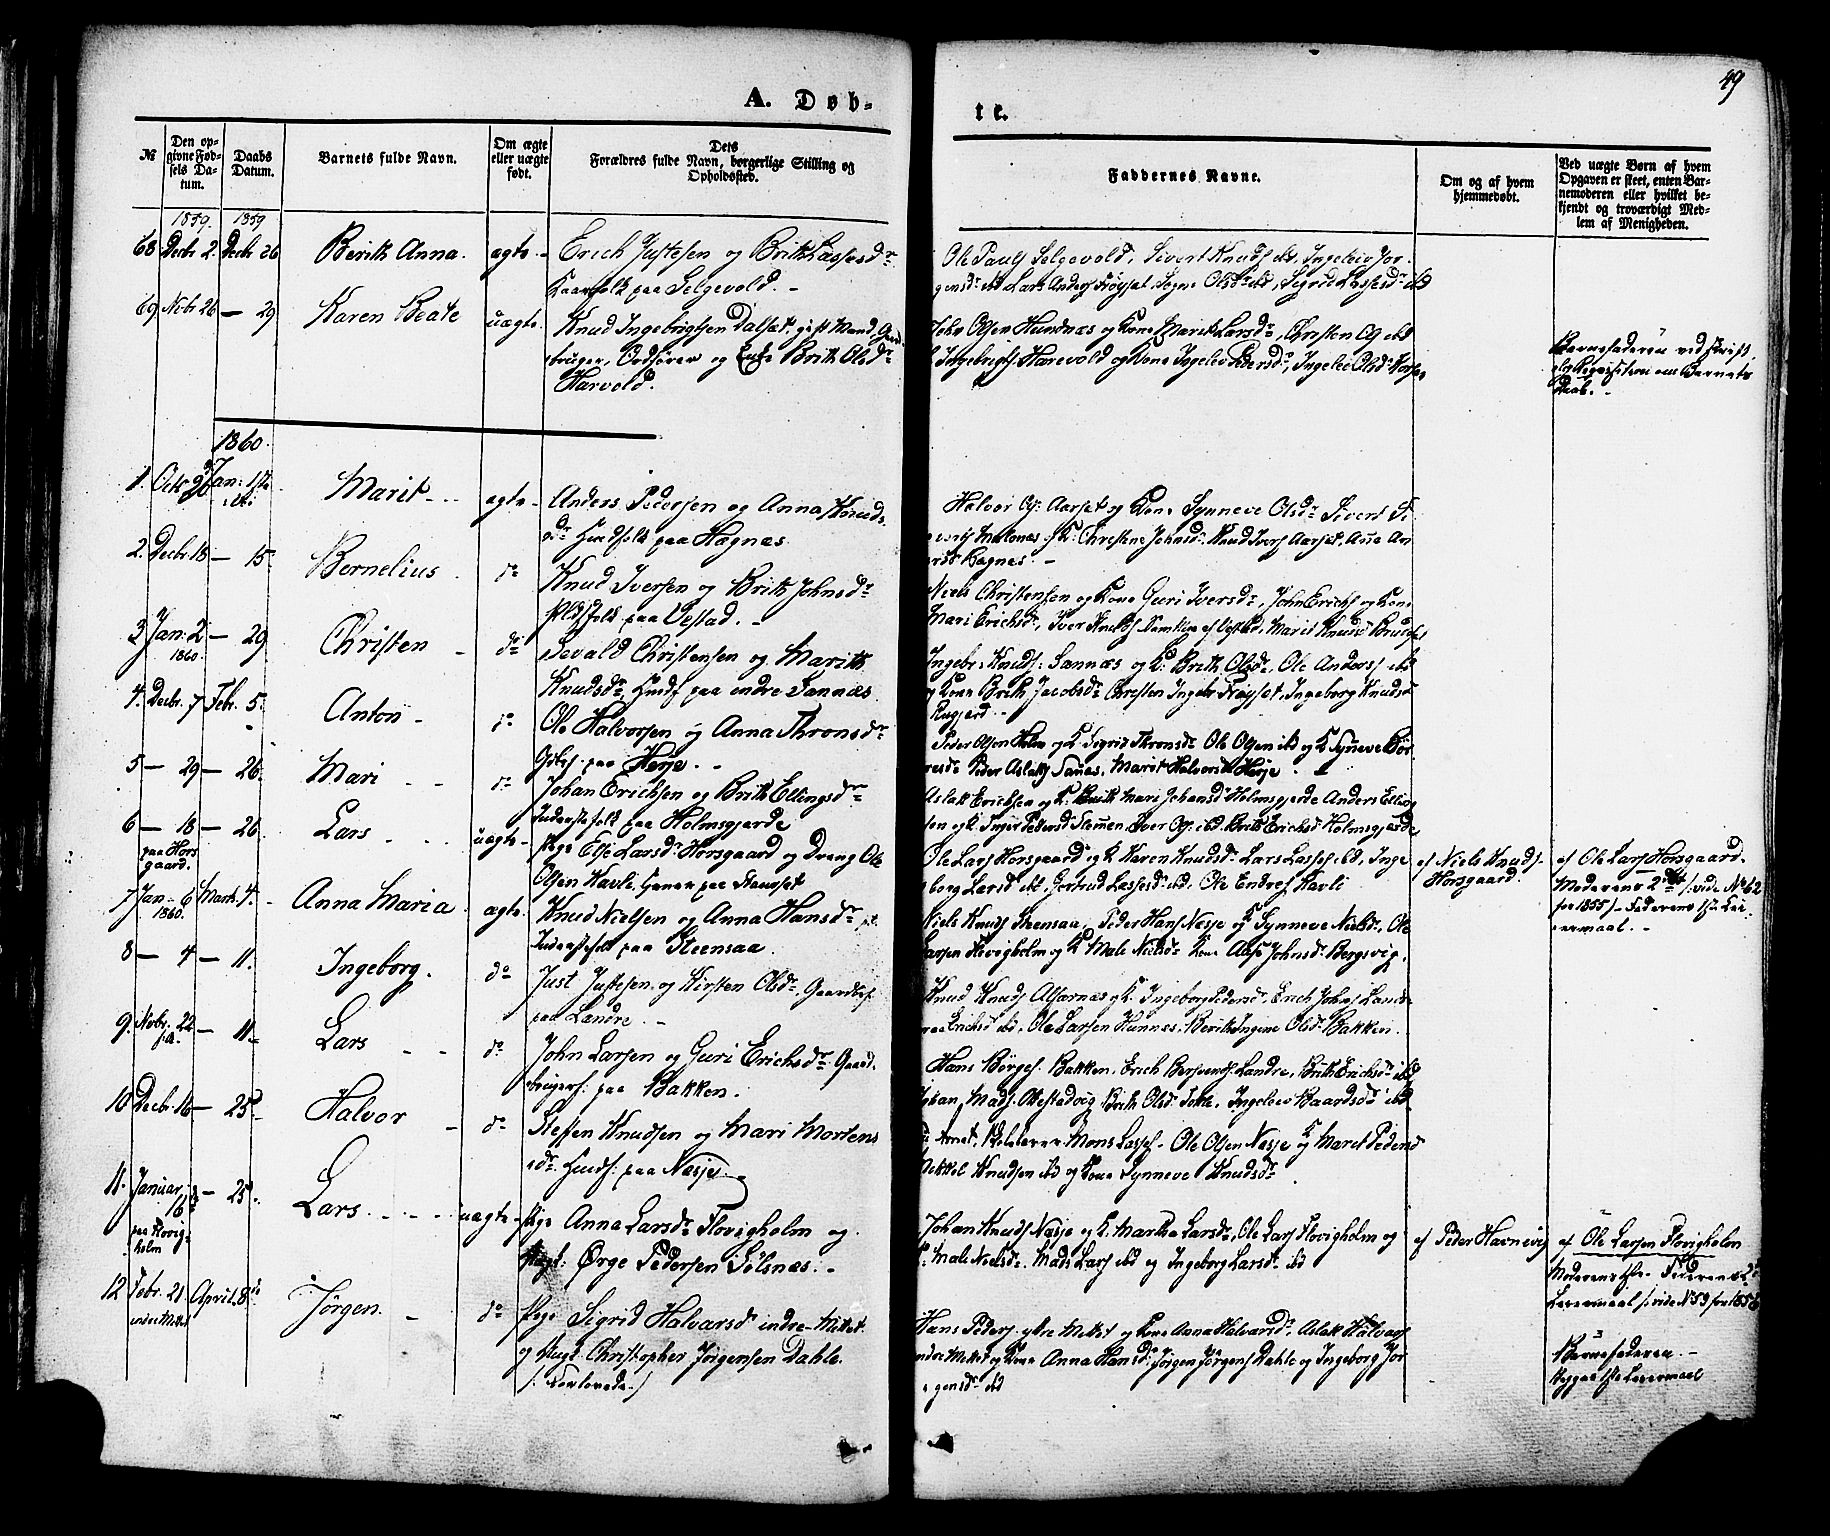 49
A. Døb-
te.
№
Den op-
givne Fød-
sels Da-
tum.
Daabs
Datum.
Barnets fulde Navn.
Om ægte
eller uægte
født.
Dets
Forældres fulde Navn, borgerlige Stilling og
Opholdssted.
Faddernes Navne.
Om og af hvem
hjemmedøbt.
Ved uægte Børn af hvem
Opgaven er skeet, enten Bar-
nemoderen eller hvilket be-
kjendt og troværdigt Med-
lem af Menigheden.
1859. 1859
68 Decbr 2. Decbr 26 Berith Anna. ægte - Erich Justesen og Brith Lassesdr
paa Selgevold. -
Ole Pauls Selgevold, Sivert Knuds ibd. Ingelev Jor-
gensdr ibd Lars Anders Frøyset, Ols dr ibd, Sigrid Lassesdr ibd
69 Novbr 26 — 29 Karen Beate uægte. Knud Ingebrigtsen Dalset, gift Mand, Gaard-
bruger, Ordfører og Enke Brith Olsdr
Harvold.
John Olsen Hundnæs og Kone Marit Larsdr, Christen O ibd
Ingebrigts Harevold og Kone Ingelev Pedersdr, Ingelev Olsdr
Barnefaderen ved skrift-
lig Reqvisition om Barnets
Daab. -
1860.
1. Octbr 20 Jan: 1ste Marit - ægte - Anders Pedersen og Anna Knuds-
dr Huusfolk paa Hagnæs.
Halvor O: Aarset og Kone Synneve Olsdr Sivert Si-
verts Malones K: Christine Johnsdr Knud Ivers Aarset, Ane An-
dersdr Hagnes. -
2. Decbr 18 — 15. Bernelius do Knud Iversen og Brith Johnsdr
Pladsfolk paa Vestad. -
Niels Christensen og Kone Guri Iversdr, John Erichs og Kone
Mari Erichsdr, Iver Knuds af Vestad, Marit Knudsdr
3 Jan: 2 — 29 Christen - do Sevald Christensen og Marith
1860.
Knudsdr, Huusf paa indre Sannæs
Ingebr: Knuds: Sannæs og K: Brith Olsdr Ole Anders ibd
og Kone Brith Jacobsdr Christen Ingebr Frøyset, Ingeborg Knudsdr
4. Decbr. 7 Febr. 5. Anton - do Ole Halvorsen og Anna Thronsdr
paa Herje. -
Peder Olsen Holm og K Sigrid Thronsdr Ole Olsen ibd og K Synneve Bør-
resdr Peder Aslaks Sanæs, Marit Halvorsdr Herje.
5 — 29 — 26. Mari - - do Johan Erichsen og Brith Ellingsdr
Inderstefolk paa Holmsgjerde
Aslak Erichsen og K: Mari Johansdr Holmsgjerde Anders Elling-
sen og K. Inger Pedersdr Stemmen Iver O. ibd. Brith Erichsdr Holmsgjerde
6 — 18 — 26. Lars - - uægte - Pige Else Larsdr: Horsgaard og Dreng Ole
paa Hors-
gaard.
Olsen Havli, paa Stavset
Ole Lars Horsgaard og K Karen Knudsdr Lars Lasses ibd, Inge-
borg Larsdr ibd, Gertrud Lassesdr ibd, Ole Endres Havli
af Niels Knuds
Horsgaard.
af Ole Lars Horsgaard.
Moderens 2det /: vide № 62
for 1855 /: Faderens 1ste Lei-
ermaal. -
7 Jan. 6 Marts 4. - Anna Maria. ægte. Knud Nielsen og Anna Hansdr
1860.
Inderstefolk paa Steensaa.
Niels Knuds Steensaa, Peder Hans Nesje og K Synneve Nielsdr, Ole
Larsen Flovigholm og K Male Nielsdr Kone Johnsdr Bergsvig.
8 — 4 — 11. Ingeborg. do Just Justesen og Kirsten Olsdr, Gaardbrf
paa Landre. -
Knud Knuds Alfarnæs og K. Ingeborg Pedersdr, Erich Johns Land-
re Erichsdr ibd, Ole Larsen Hunnes, Berith Ingine Olsdr Bakken.
9. Novbr. 22 — 11. Lars - - do John Larsen og Guri Erichsdr Gaard-
brugerf: paa Bakken.
Hans Børges Bakken, Erich Landre, Brith Erichsdr ibd
Johan Mads: Olsdr Tokle, Ingelev Baardsdr ibd
10 Decbr. 16 — 25de Halvor - do Steffen Knudsen og Mari Mortens-
dr. Huusf: paa Nesje
Mons Lasses - Ole Olsen Nesje og K Marit Pedersdr
Mekkel Knudsen ibd og Kone Synneve Knudsdr
11. Januar 6 — 25de. Lars. - - - uægte - Pige Anna Larsdr Flovigholm og
paa Flovig-
holm
Ørge Pedersen Sølsnæs. -
Johan Knuds Nesje og K. Martha Larsdr, Ole Lars Flovigholm og
K. Male Nielsdr. Mads Lars ibd og Ingeborg Larsdr. ibd
af Peder Havnevig
af Ole Larsen Flovigholm
Moderens 1ste Faderens 2det
Leiermaal /: vide № 59 for 1858
12 Febr. 21 April 8de Jørgen. - do Pige Sigrid Halvarsdr indre Mittet
indre Mittet
og Ungk. Christopher Jørgensen Dahle.
/: Forlovede :/
Hans Peders. ytre Mittet og Kone Anna Halvarsdr, Aslak Halvars
indre Mittet og Kone Anna Hansdr Jørgen Jørgens Dahle og Ingeborg Jør-
gensdr ibd
Barnefaderen. -
Begges 1ste Leiermaal